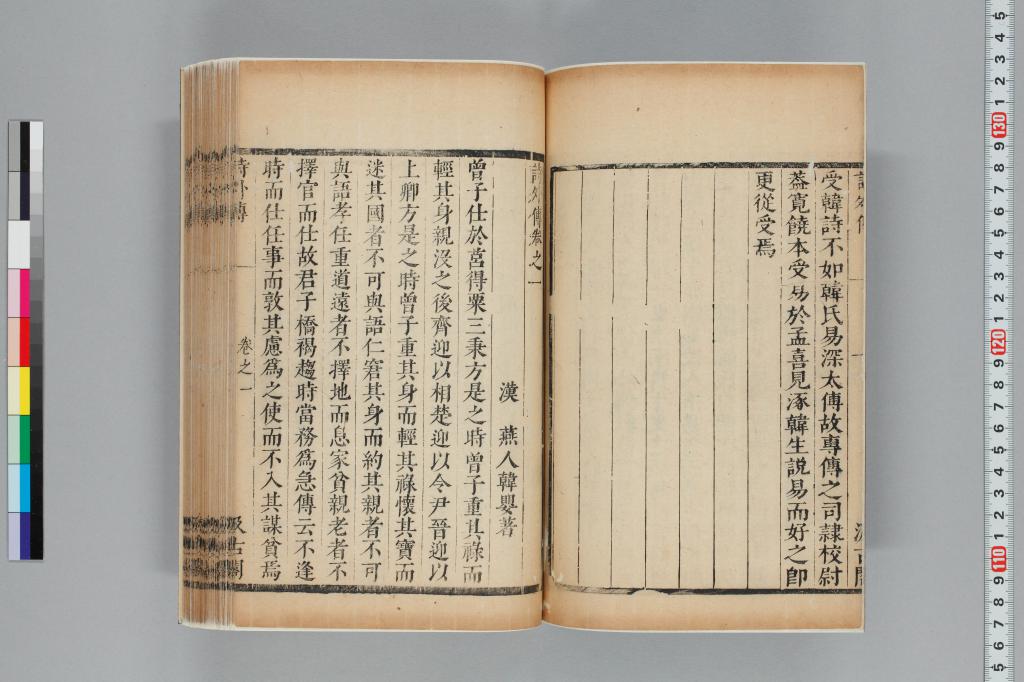 受韓詩不如韓氏易深太傅故專傳之司隷校尉
葢寬饒本受易於孟喜見涿韓生説易而好之卽
更從受焉
詩外傳卷之一
漢 燕人韓嬰著
曾子仕於莒得粟三秉方是之時曾子重其祿而
輕其身親没之後齊迎以相楚迎以令尹晉迎以
上卿方是之時曾子重其身而輕其祿懷其寶而
迷其國者不可與語仁窘其身而約其親者不可
與語孝任重道遠者不擇地而息家貧親老者不
擇官而仕故君子橋褐趨時當務爲急傳云不逢
時而仕任事而敦其慮爲之使而不入其謀貧焉
詩外傳 卷之一 汲古閣